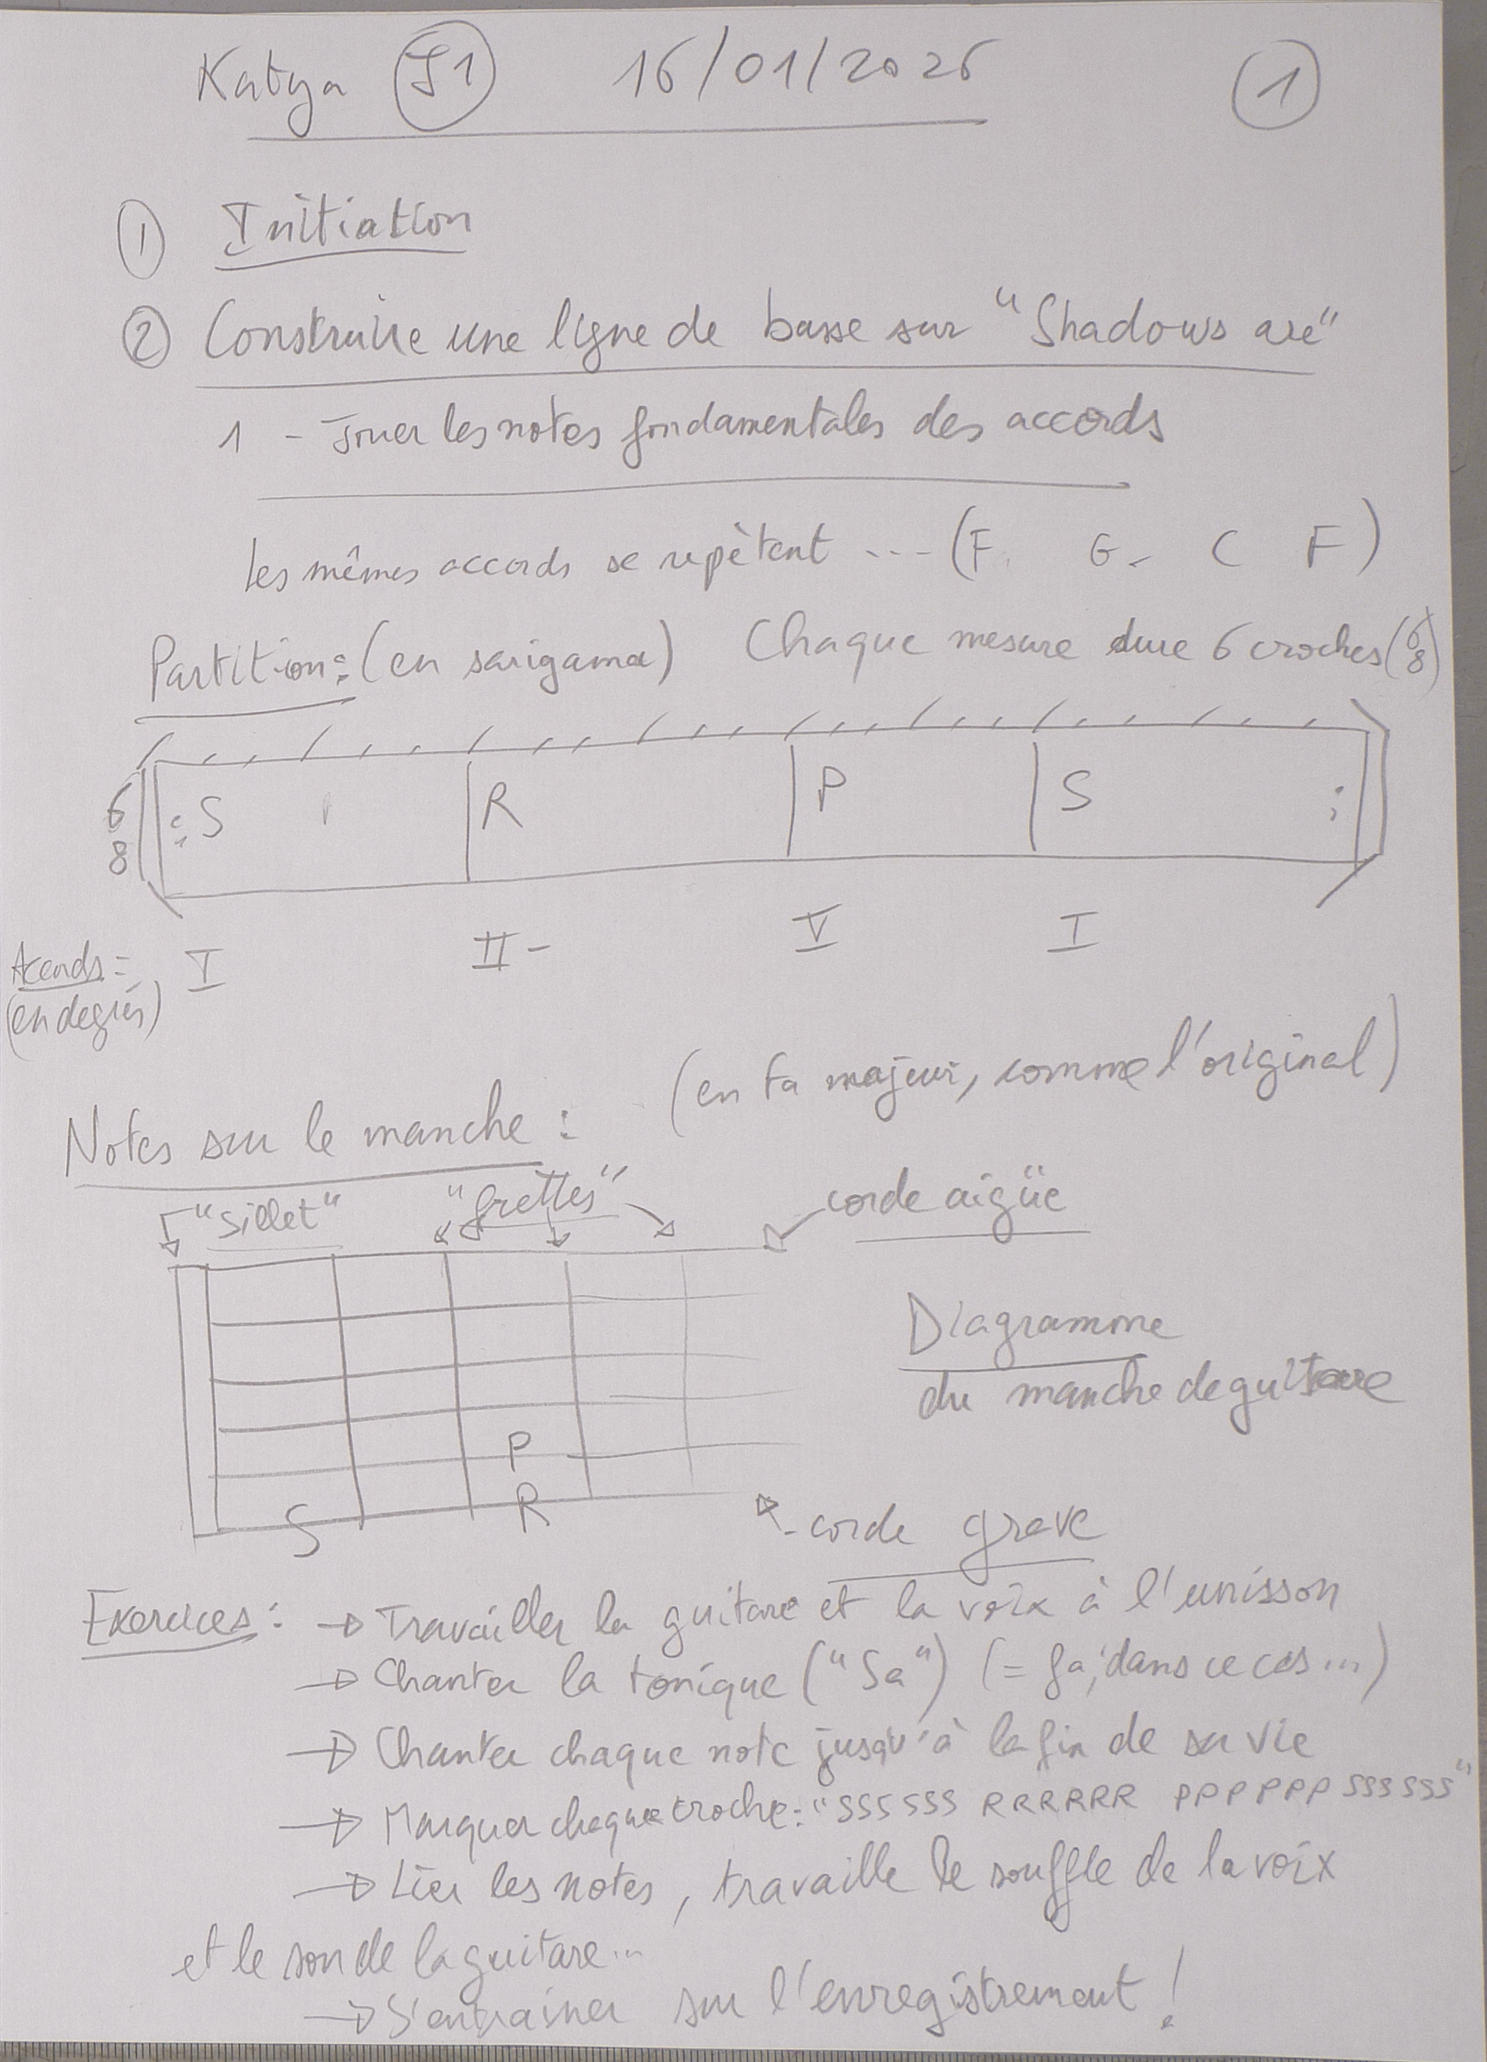 Katya S1 16/01/2026 1
1 Initiation
2 Construire une ligne de basse sur "Shadows are"
1 - Jouer les notes fondamentales des accords
Les mêmes accords se repètent ... (F G- C F)
Partition : (en sarigama) Chaque mesure dure 6 croches (6/8)
6/8 : S R P S :
Accords :
(en degrés) I II- V I
(en Fa majeur, comme l'original)
Notes sur le manche :
"sillet" "frettes" corde aigüe
Diagramme
du manche de guitare
P
S R
corde grave
Exercices : → Travailler la guitare et la voix à l'unisson
→ Chanter la tonique ("Sa") (= fa, dans ce cas ...)
→ Chanter chaque note jusqu'à la fin de sa vie
→ Marquer chaque croche : "SSSSSS RRRRRR PPPPPP SSSSSS"
→ Lier les notes, travaille le souffle de la voix
et le son de la guitare...
→ S'entrainer sur l'enregistrement !